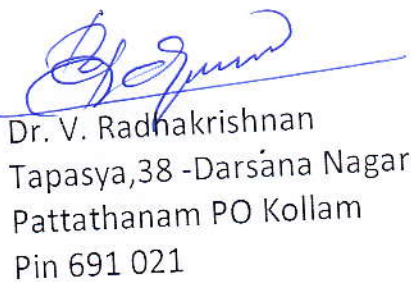 Dr. V. Radhakrishnan
Tapasya,38 -Darsana Nagar
Pattathanam PO Kollam
Pin 691 021